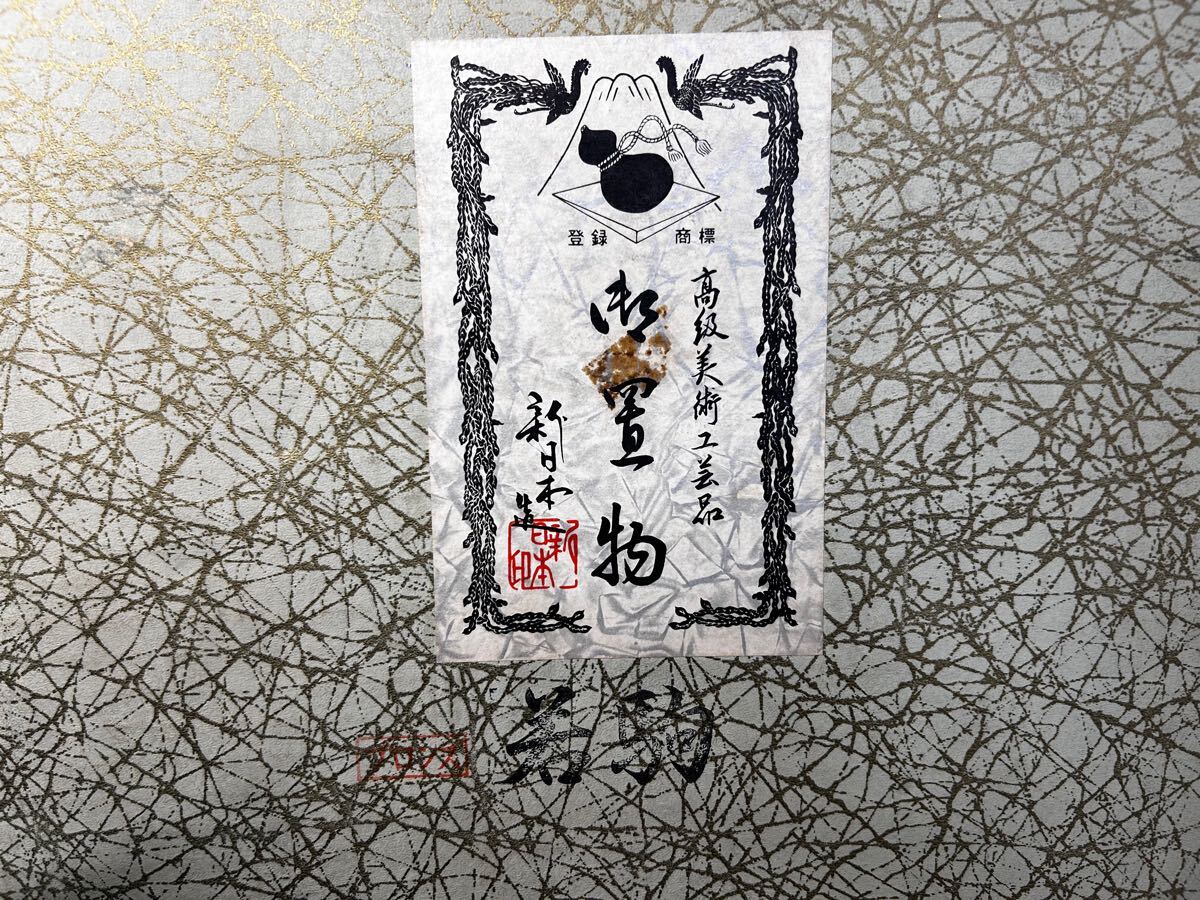 登録 商標
高級美術工芸品
御置物
新日本造
新日本印
若駒
ブロンズ